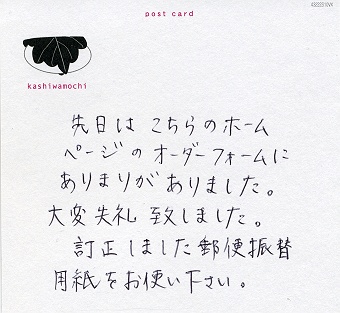 post card
kashiwamochi
先日は こちらのホーム
ページの オーダーフォームに
ありまりがありました。
大変失礼 致しました。
訂正しました郵便振替
用紙をお使い下さい。